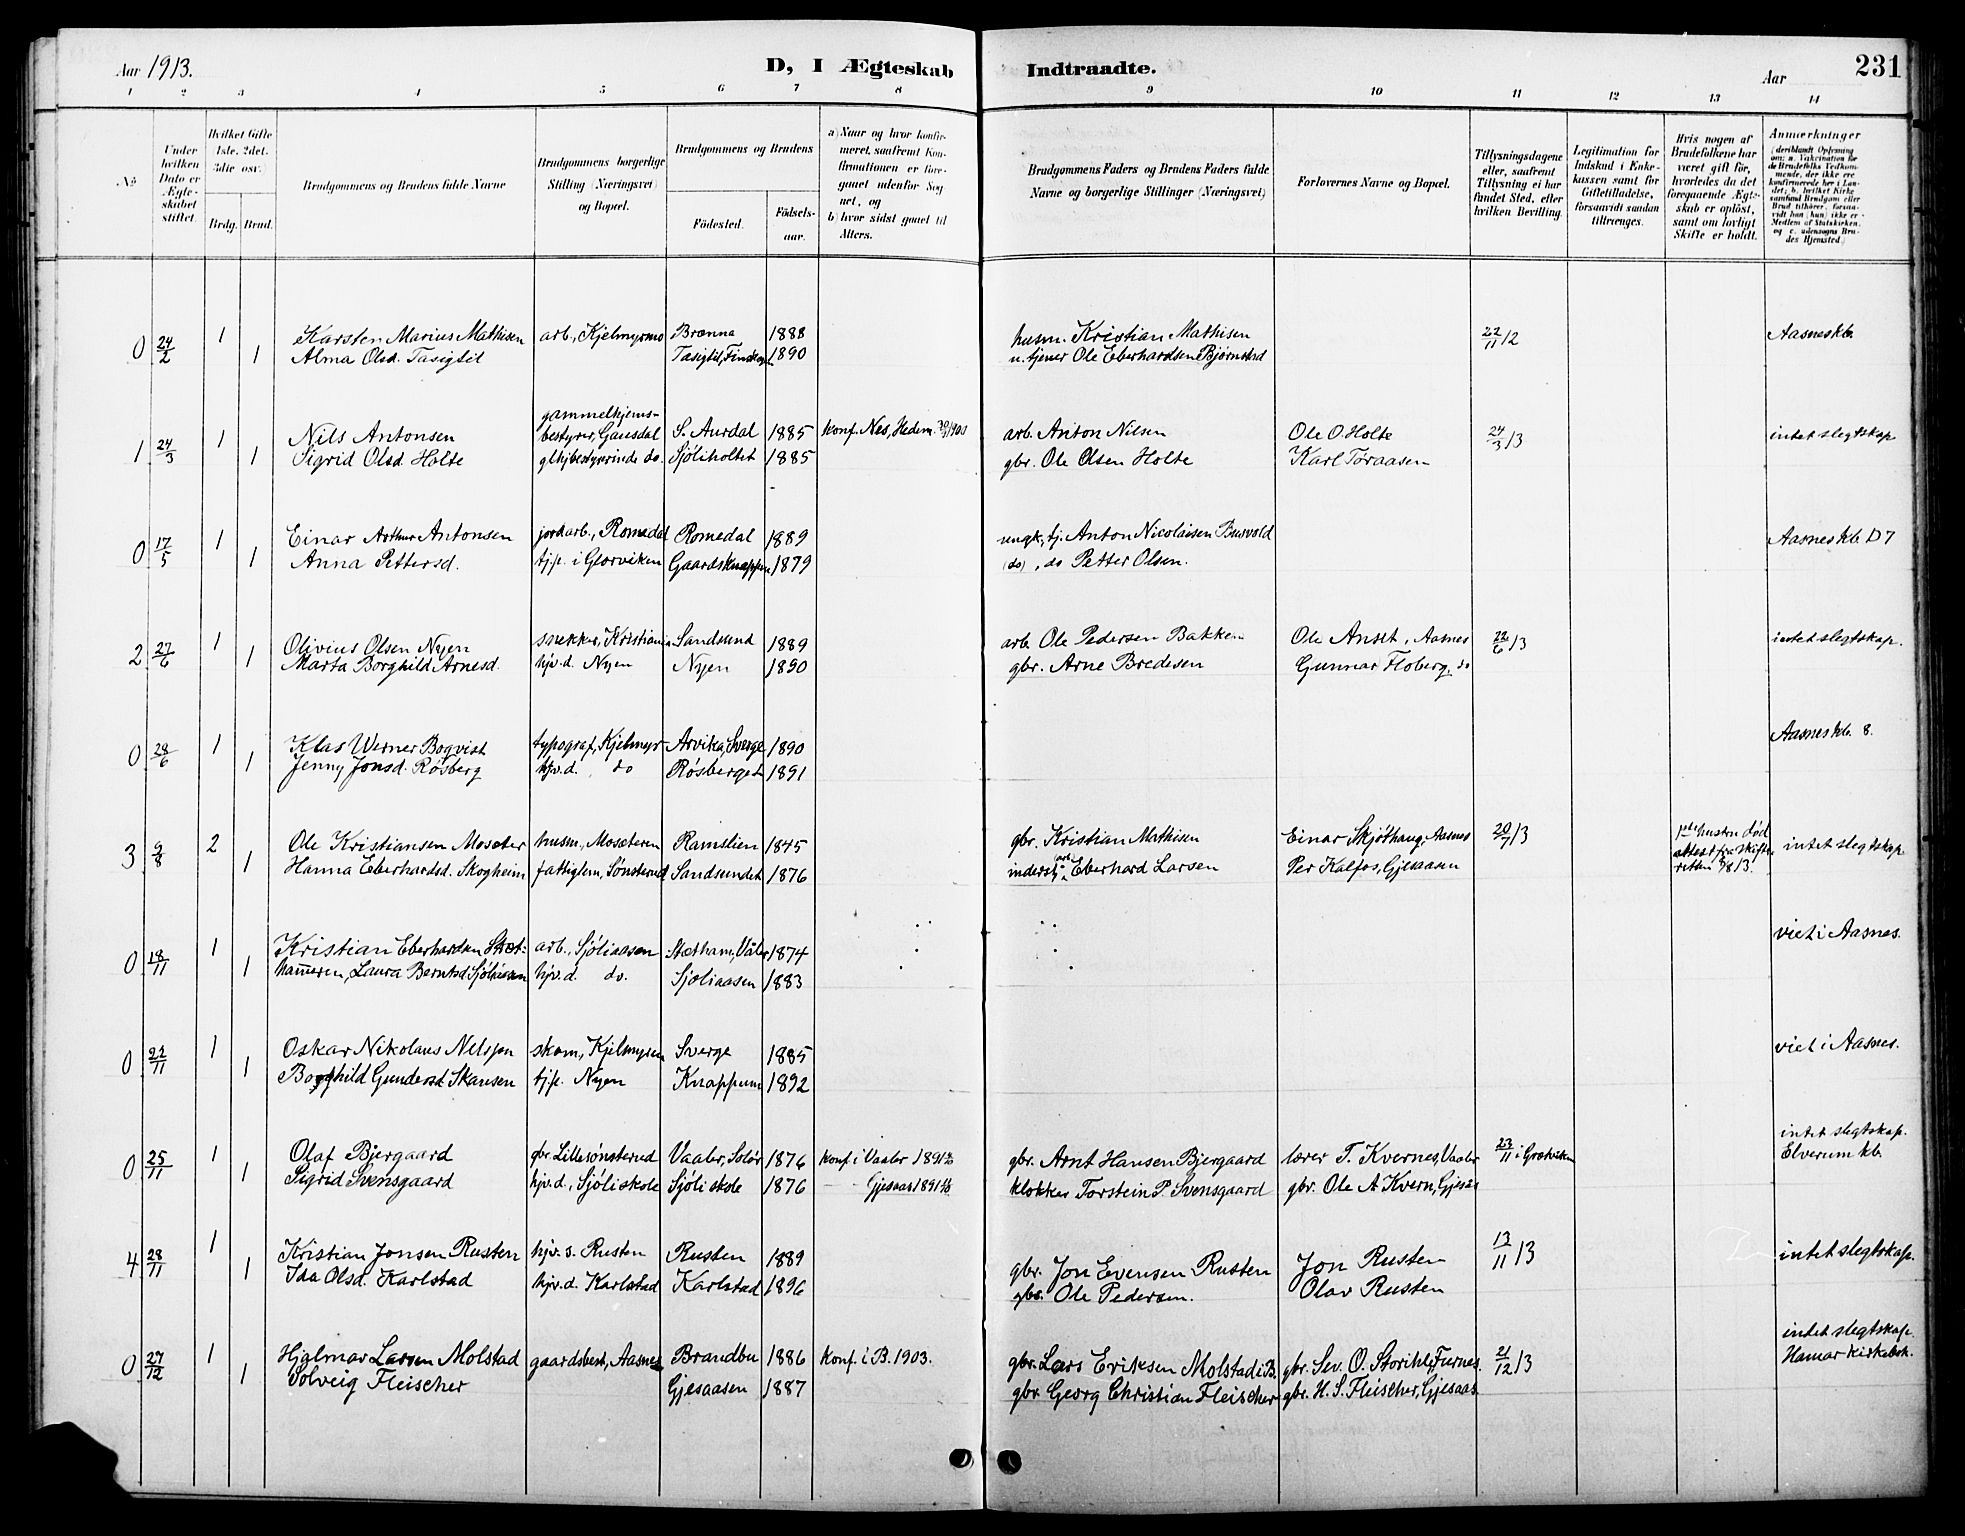 Aar 1913.
D, I Ægteskab Indtraadte.
Aar
231
1 2 3 4 5 6 7 8 9 10 11 12 13 14
No
Under hvilken Dato er Ægteskabet stiftet.
Hvilket Gifte 1ste, 2det, 3die osv.
Brdg. Brud.
Brudgommens og Brudens fulde Navne
Brudgommens borgerlige Stilling (Næringsvei) og Bopæl.
Brudgommens og Brudens
Fødested.
Fødselsaar.
a) Naar og hvor konfirmeret, saafremt Konfirmationen er foregaaet udenfor Sognet, og
b) hvor sidst gaaet til Alters.
Brudgommens Faders og Brudens Faders fulde Navne og borgerlige Stillinger (Næringsvei)
Forlovernes Navne og Bopæl.
Tillysningsdagene eller, saafremt Tillysning ei har fundet Sted, efter hvilken Bevilling.
Legitimation for Indskud i Enkekassen samt for Giftetilladelse, forsaavidt saadan tiltrænges.
Hvis nogen af Brudefolkene har været gift før, hvorledes da det foregaaende Ægteskab er opløst, samt om lovligt Skifte er holdt.
Anmærkninger
0 24/2 1 Karsten Marius Mathisen arb., Kjelmyrmo Brænna 1888 husm. Kristian Mathisen 22/11 12 Aasnes kb.
1 Alma Olsd. Tasigtit Tasigtit, Finskogen 1890 u. tjener Ole Eberhardsen Bjørnstad
gammelhjems-
1 24/3 1 Nils Antonsen bestyrer, Gausdal S. Aurdal 1885 konf. Nes, Hedem. 1900 arb. Anton Nilsen Ole O. Holte 24/3 13 intet slegtskap
1 Sigrid Olsd. Holte glhjbestyrerinde do. Sjøliholtet 1885 gbr. Ole Olsen Holte Karl Toraasen
0 17/5 1 Einar Arthur Antonsen jordarb., Romedal Romedal 1889 ungk., tj. Anton Nicolaisen Busvold Aasnes kb. D 7
1 Anna Pettersd. tj.p. i Glorviken Gaardsknappen 1879 (do), do Petter Olsen.
2 27/6 1 Olivius Olsen Nyen snekker, Kristiania Sandsund 1889 arb. Ole Pedersen Bakken Ole Anset, Aasnes 22/6 13 intet slegtskap.
1 Marta Borghild Arnesd. hjv.d. Nyen Nyen 1890 gbr. Arne Bredesen Gunnar Floberg, do
0 28/6 1 Klas Werner Boqvist typograf, Kjelmyr Arvika, Sverge 1890 Aasnes kb. 8.
1 Jenny Jonsd. Røsberg hjv.d. do Røsberget 1891
3 9/8 2 Ole Kristiansen Moseter husm., Moseteren Ramslien 1845 gbr. Kristian Mathisen Einar Skjøthaug, Aasnes 20/7 13 1ste hustru død attest fra skifteretten 7/8 13. intet slegtskap
1 Hanna Eberhardsd. Skogheim fattiglem, Sønsterud Sandsundet 1876 inderst, Eberhard Larsen Per Kalfos, Gjesaasen
0 18/11 1 Kristian Eberhardsen Stæt- arb., Sjøliaasen Stætham, Våler 1874 viet i Aasnes.
1 hameren, Laura Berntsd. Sjøliaasen hjv.d. do. Sjøliaasen 1883
0 22/11 1 Oskar Nikolaus Nelsson skom., Kjelmyren Sverge 1885 viet i Aasnes.
1 Borghild Gundersd. Skansen tj.p. Nyen Knappum 1892
0 25/11 1 Olaf Bjergaard gbr. Lillesønsterud Vaaler, Solør 1876 konf. i Vaaler 1891 gbr. Arnt Hansen Bjergaard lærer T. Kvernes, Vaaler 23/11 i Grøtviken intet slegtskap. Elverum kb.
1 Sigrid Svensgaard hjv.d., Sjøli skole Sjøli skole 1876 Gjesaas 1891 klokker Torstein P. Svensgaard gbr. Ole A Kvern, Gjesås
4 28/11 1 Kristian Jonsen Rusten hjv.s. Rusten Rusten 1889 gbr. Jon Evensen Rusten Jon Rusten 13/11 13 intet slegtskap.
1 Ida Olsd. Karlstad hjv.d. Karlstad Karlstad 1896 gbr. Ole Pedersen. Olav Rusten
0 27/12 1 Hjalmar Larsen Molstad gaardsbest., Aasnes Brandbu 1886 konf. i B. 1903. gbr. Lars Eriksen Molstad i B. gbr. Sev. O. Storihle, Furnes. 21/12 13 intet slegtskap. Hamar kirkebok.
1 Solveig Fleischer Gjesaasen 1887 gbr. Georg Christian Fleischer gbr. H. S. Fleischer, Gjesaas